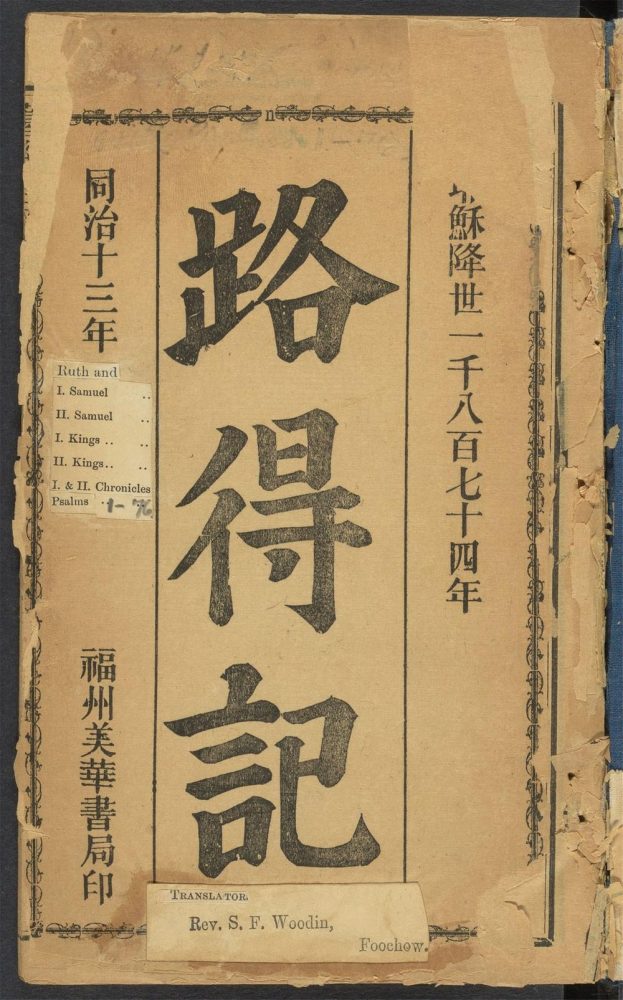 耶穌降世一千八百七十四年
路得記
同治十三年
福州美華書局印
Ruth and
I. Samuel ..
II. Samuel ..
I. Kings .. ..
II. Kings.. ..
I. & II. Chronicles
Psalms .. 1-76
TRANSLATOR.
Rev. S. F. Woodin,
Foochow.